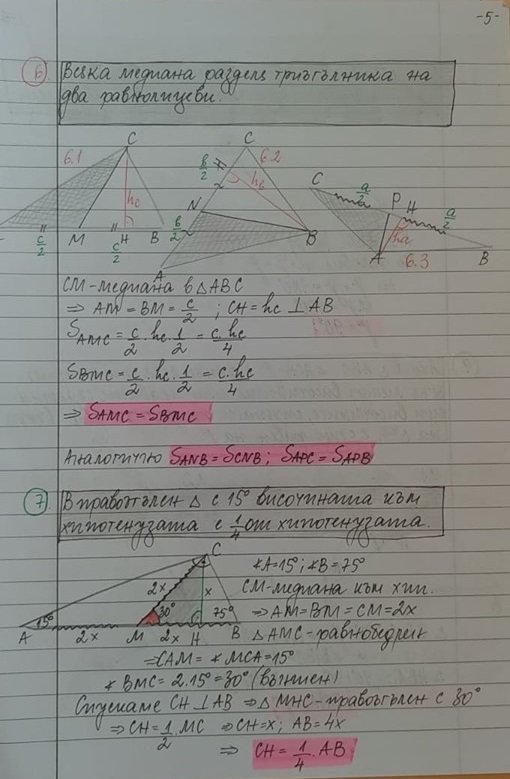 -5-
6 Всяка медиана разделя триъгълника на
два равнолицеви.
6.1 C M H B c/2 c/2 hc
6.2 C N A B b/2 b/2 hb
6.3 C P H A B a/2 a/2 ha
CM-медиана в △ABC
⇒ AM = BM = c/2 ; CH = hc ⊥ AB
SAMC = c/2 . hc . 1/2 = c.hc/4
SBMC = c/2 . hc . 1/2 = c.hc/4
⇒ SAMC = SBMC
Аналогично SANB = SCNB ; SAPC = SAPB
7 В правоъгълен △ с 15° височината към
хипотенузата е 1/4 от хипотенузата.
A 15° 2x M 30° 2x H 75° B C 2x x
∢A = 15° ; ∢B = 75°
CM-медиана към хип.
⇒ AM = BM = CM = 2x
△AMC-равнобедрен
⇒ CAM = ∢MCA = 15°
∢BMC = 2.15° = 30° (външен)
Спускаме CH ⊥ AB ⇒ △MHC-правоъгълен с 30°
⇒ CH = 1/2 . MC ⇒ CH = x ; AB = 4x
⇒ CH = 1/4 . AB